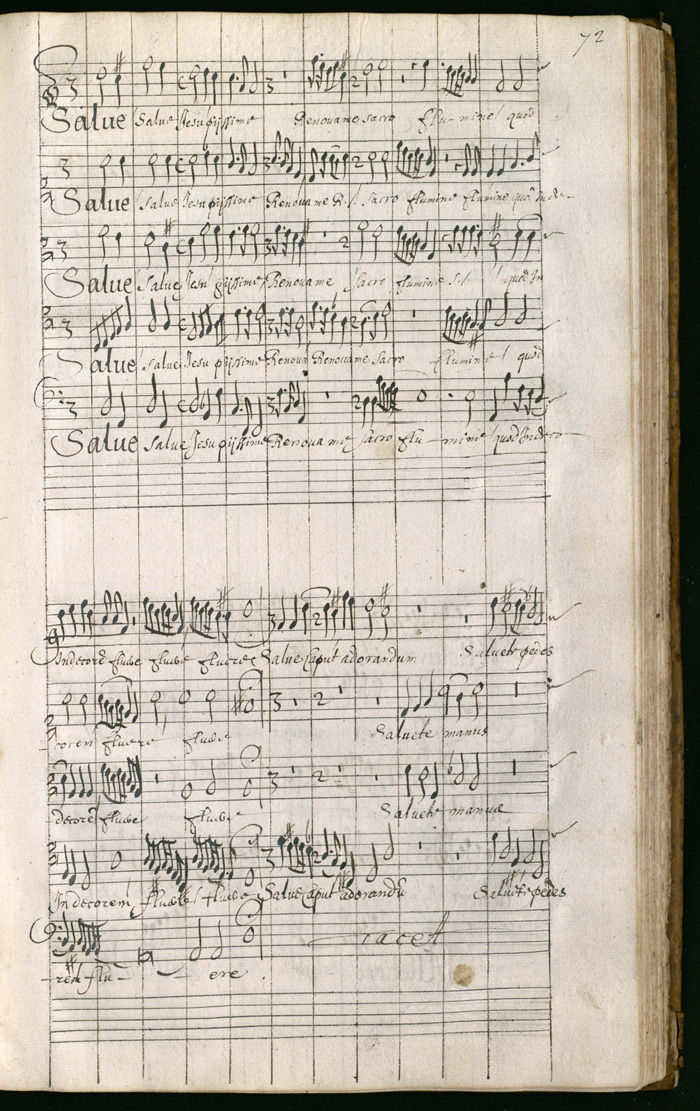 72
Salue Salue Jesu pijssime Renoua me sacro flu-mine quod
Salue Salue Jesu pijssime Renoua me sacro flumine flumine quod Inde-
Salue Salue Jesu pijssime Renoua me sacro flumine quod In
Salue Salue Jesu pijssime Renoua Renoua me sacro flumine quod
Salue Salue Jesu pijssime Renoua me sacro flu-mine quod Indeco-
Indecorē fluere Salue Caput adorandum Saluete pedes
corem fluere Saluete manus
decorē Saluete manus
In decorem Salue Caput adorandū Saluete pedes
-rem flu-ere. tacet